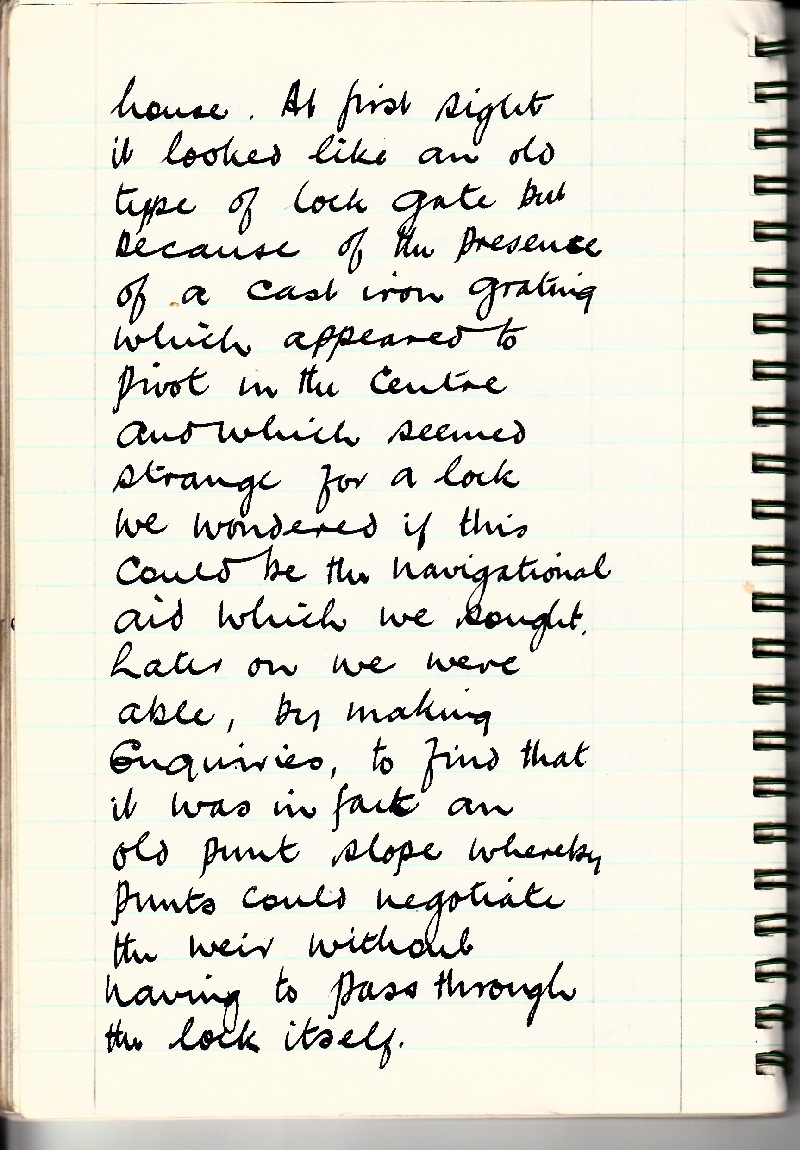 house. At first sight
it looked like an old
type of lock gate but
because of the presence
of a cast iron grating
which appeared to
pivot in the centre
and which seemed
strange for a lock
we wondered if this
could be the navigational
aid which we sought.
Later on we were
able, by making
enquiries, to find that
it was in fact an
old punt slope whereby
punts could negotiate
the weir without
having to pass through
the lock itself.